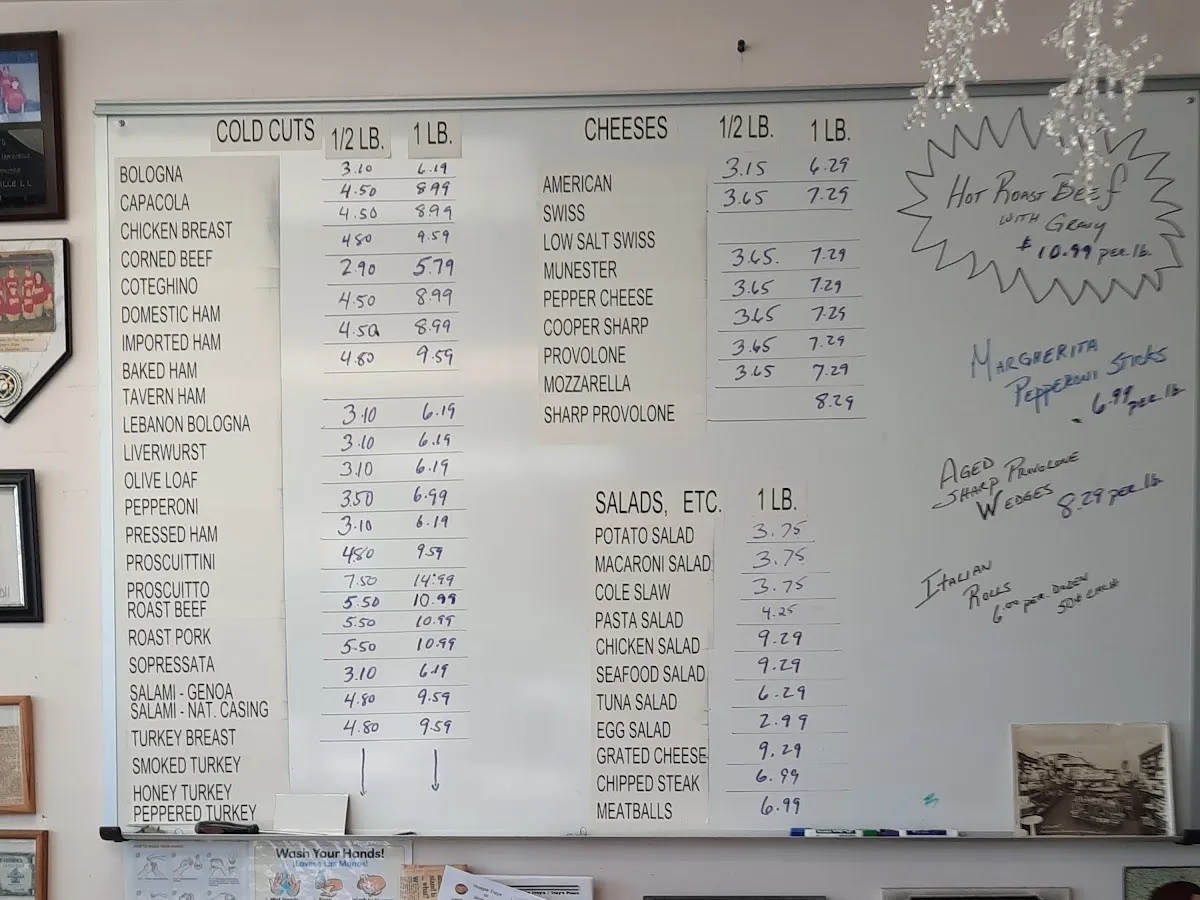 COLD CUTS 1/2 LB. 1 LB.
BOLOGNA 3.10 6.19
CAPACOLA 4.50 8.99
CHICKEN BREAST 4.50 8.99
CORNED BEEF 4.80 9.59
COTEGHINO 2.90 5.79
DOMESTIC HAM 4.50 8.99
IMPORTED HAM 4.50 8.99
BAKED HAM 4.80 9.59
TAVERN HAM
LEBANON BOLOGNA 3.10 6.19
LIVERWURST 3.10 6.19
OLIVE LOAF 3.10 6.19
PEPPERONI 3.50 6.99
PRESSED HAM 3.10 6.19
PROSCIUTTINI 4.80 9.59
PROSCIUTTO 7.50 14.99
ROAST BEEF 5.50 10.99
ROAST PORK 5.50 10.99
SOPRESSATA 5.50 10.99
SALAMI - GENOA 3.10 6.19
SALAMI - NAT. CASING 4.80 9.59
TURKEY BREAST 4.80 9.59
SMOKED TURKEY
HONEY TURKEY
PEPPERED TURKEY
CHEESES 1/2 LB. 1 LB.
AMERICAN 3.15 6.29
SWISS 3.65 7.29
LOW SALT SWISS
MUNESTER 3.65. 7.29
PEPPER CHEESE 3.65 7.29
COOPER SHARP 3.65 7.29
PROVOLONE 3.65 7.29
MOZZARELLA 3.65 7.29
SHARP PROVOLONE 8.29
SALADS, ETC. 1 LB.
POTATO SALAD 3.75
MACARONI SALAD 3.75
COLE SLAW 3.75
PASTA SALAD 4.25
CHICKEN SALAD 9.29
SEAFOOD SALAD 9.29
TUNA SALAD 6.29
EGG SALAD 2.99
GRATED CHEESE 9.29
CHIPPED STEAK 6.99
MEATBALLS 6.99
HOT ROAST BEEF
WITH GRAVY
$10.99 per.lb.
MARGHERITA
PEPPERONI STICKS
6.99 per.lb
AGED
SHARP PROVOLONE
WEDGES 8.29 per.lb
ITALIAN
ROLLS
6.00 PER. DOZEN
50¢ EACH
Wash Your Hands!
¡Lávese Las Manos!